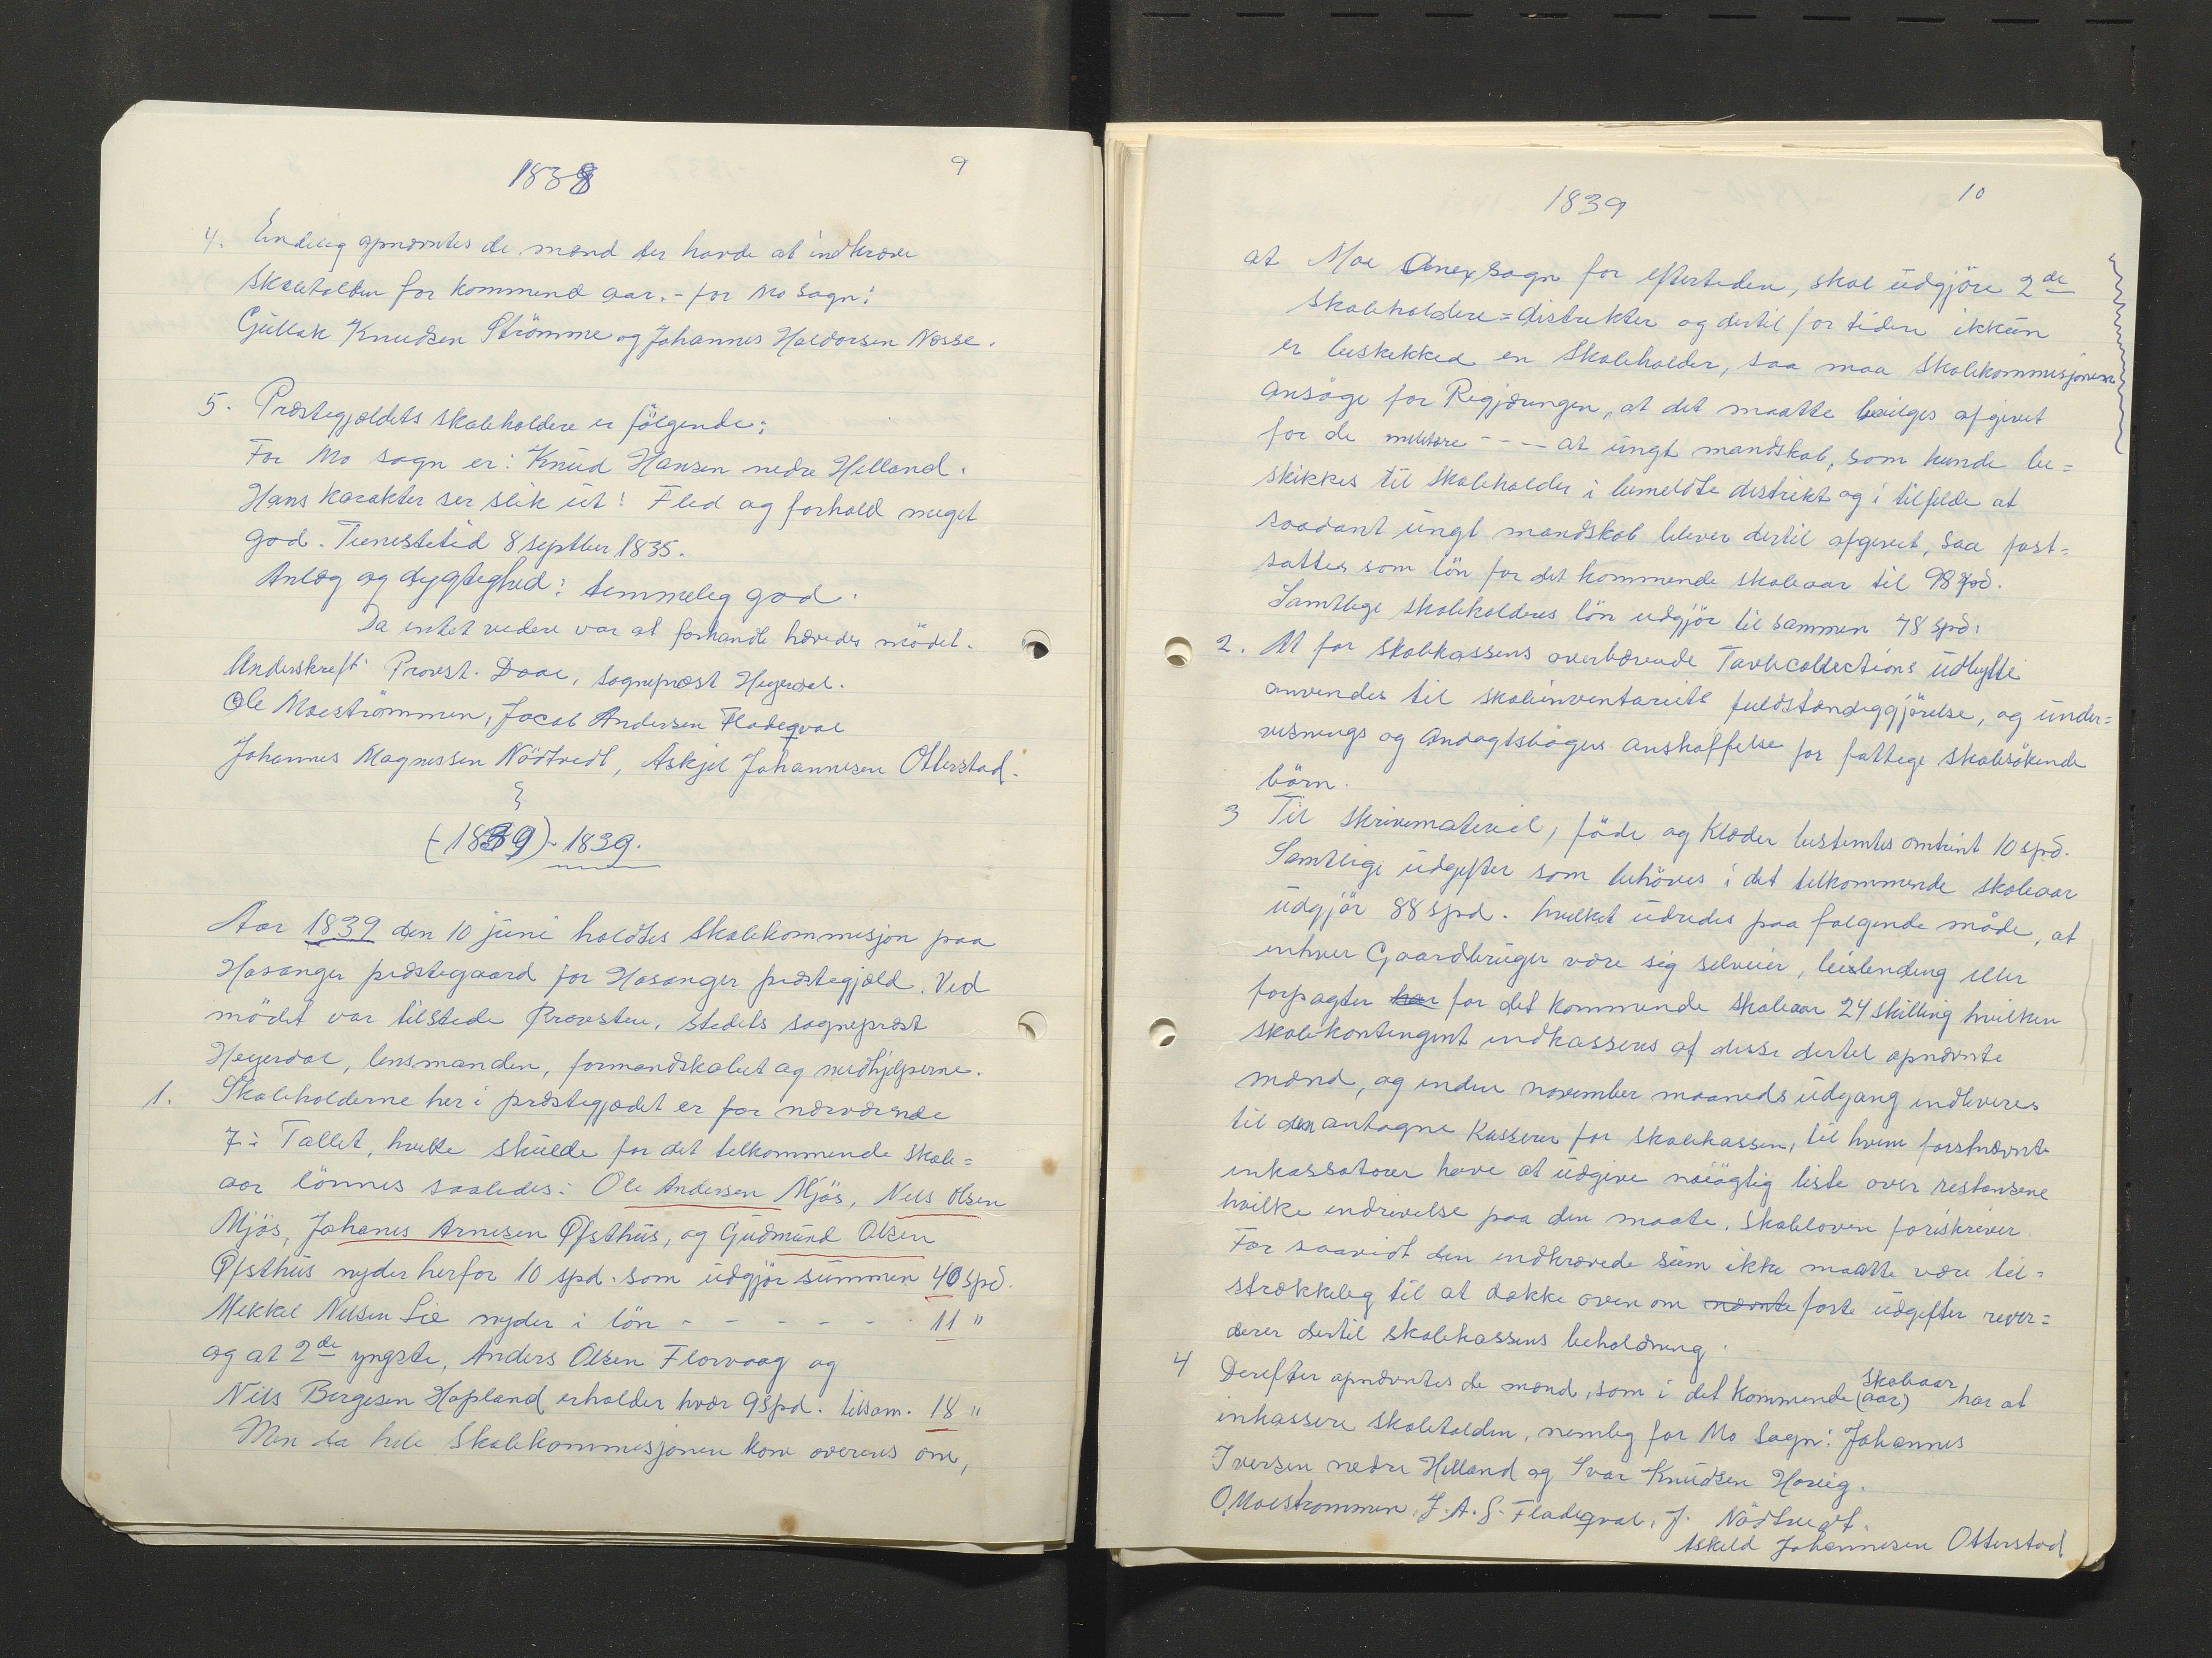 1838
9
4. Endelig opnævntes de mænd der havde at indkræve
skoletolden for kommend aar. - for Mo sogn:
Gullak Knudsen Strömme og Johannes Haldorsen Nesse.
5. Præstegjældets skoleholdere er fölgende:
For Mo sogn er: Knud Hansen nedre Helland.
Hans karakter ser slik ut: Flid og forhold meget
god. Tienestetid 8 septber 1835.
Anlæg og dygtighed: temmelig god.
Da intet videre var at forhandle hævedes mödet.
Underskrift: Provst. Daae, sogneprest Heyerdal.
Ole Moeströmmen, Jacob Andersen Fladeqval
Johannes Magnessen Nödtvedt, Askjel Johannesen Otterstad.
(-1839)- 1839.
Aar 1839 den 10 juni holdtes Skolekommisjon paa
Hosanger prestegaard for Hosanger prestegjæld. Ved
mödet var tilstede Provsten, stedets sogneprest
Heyerdal, lensmanden, formandskabet og medhjelperne.
1. Skoleholderne her i prestegjældet er for nærværende
7 i Tallet, hvilke skulde for det tilkommende skole=
aar lönnes saaledes: Ole Andersen Mjös, Nils Olsen
Mjös, Johanes Arnesen Øfsthus, og Gudmund Olsen
Øfsthus nyder herfor 10 spd. som udgjör summen 40 spd.
Mekkel Nilsen Lie nyder i lön - - - - - - 11 "
og at 2de yngste, Anders Olsen Florvaag og
Nils Bergesen Hopland erholder hvær 9 spd. tilsam. 18 "
Men da hele Skolekommesjonen kom overens om,
1839
10
at Moe Anexsogn for eftertiden, skal udgjöre 2de
Skoleholdere=distrikter og dertil for tiden ikkun
er beskikked en Skoleholder, saa maa Skolekommisjonen
ansöge for Regjæringen, at det maatte bevilges afgivet
for de militære - - - at ungt mandskab, som kunde be=
skikkes til Skoleholder i bemeldte distrikt og i tilfelde at
saadant ungt mandskab bliver dertil afgivet, saa fast=
sattes som lön for det kommende skoleaar til 9 spd.
Samtlige skoleholderes lön udgjör til sammen 78 spd.
2. At for skolekassens overbærende Tavlecollections udbytte
anvendes til skoleinventariets fuldstændiggjörelse, og under=
visnings og Andagtsböger anskaffelse for fattige skolesökende
börn.
3 Til skrivemateriel, föde og klæder bestemtes omtrint 10 spd.
Samtlige udgifter som behöves i det tilkommende skoleaar
udgjör 88 spd. hvilket udredes paa følgende måde, at
enhver Gaardbruger være sig selveier, leilending eller
forpagter har for det kommende skoleaar 24 skilling hvilken
skolekontingent indkasseres af disse dertil opnævnte
mænd, og inden november maaneds udgang indleveres
til den antagne kasserer for skolekassen, til hvem forstnævnte
inkassatorer have at udgive nöiagtig liste over restansene
hvilke indrivelse paa den maate, Skoleloven foriskriver.
For saavidt den indkrævede sum ikke maatte være til=
strækkelig til at dække ovenom nævnte faste udgifter rever=
derer dertil skolekassens beholdning.
4 Derefter opnævntes de mænd, som i det kommende (aar) skoleaar har at
inkassere skoletolden, nemlig for Mo Sogn: Johannes
Iversen nedre Helland og Ivar Knudsen Hosleig.
O. Moestrommen. J. A. S. Fladeqval, J. Nödtvedt.
Askild Johannesen Otterstad